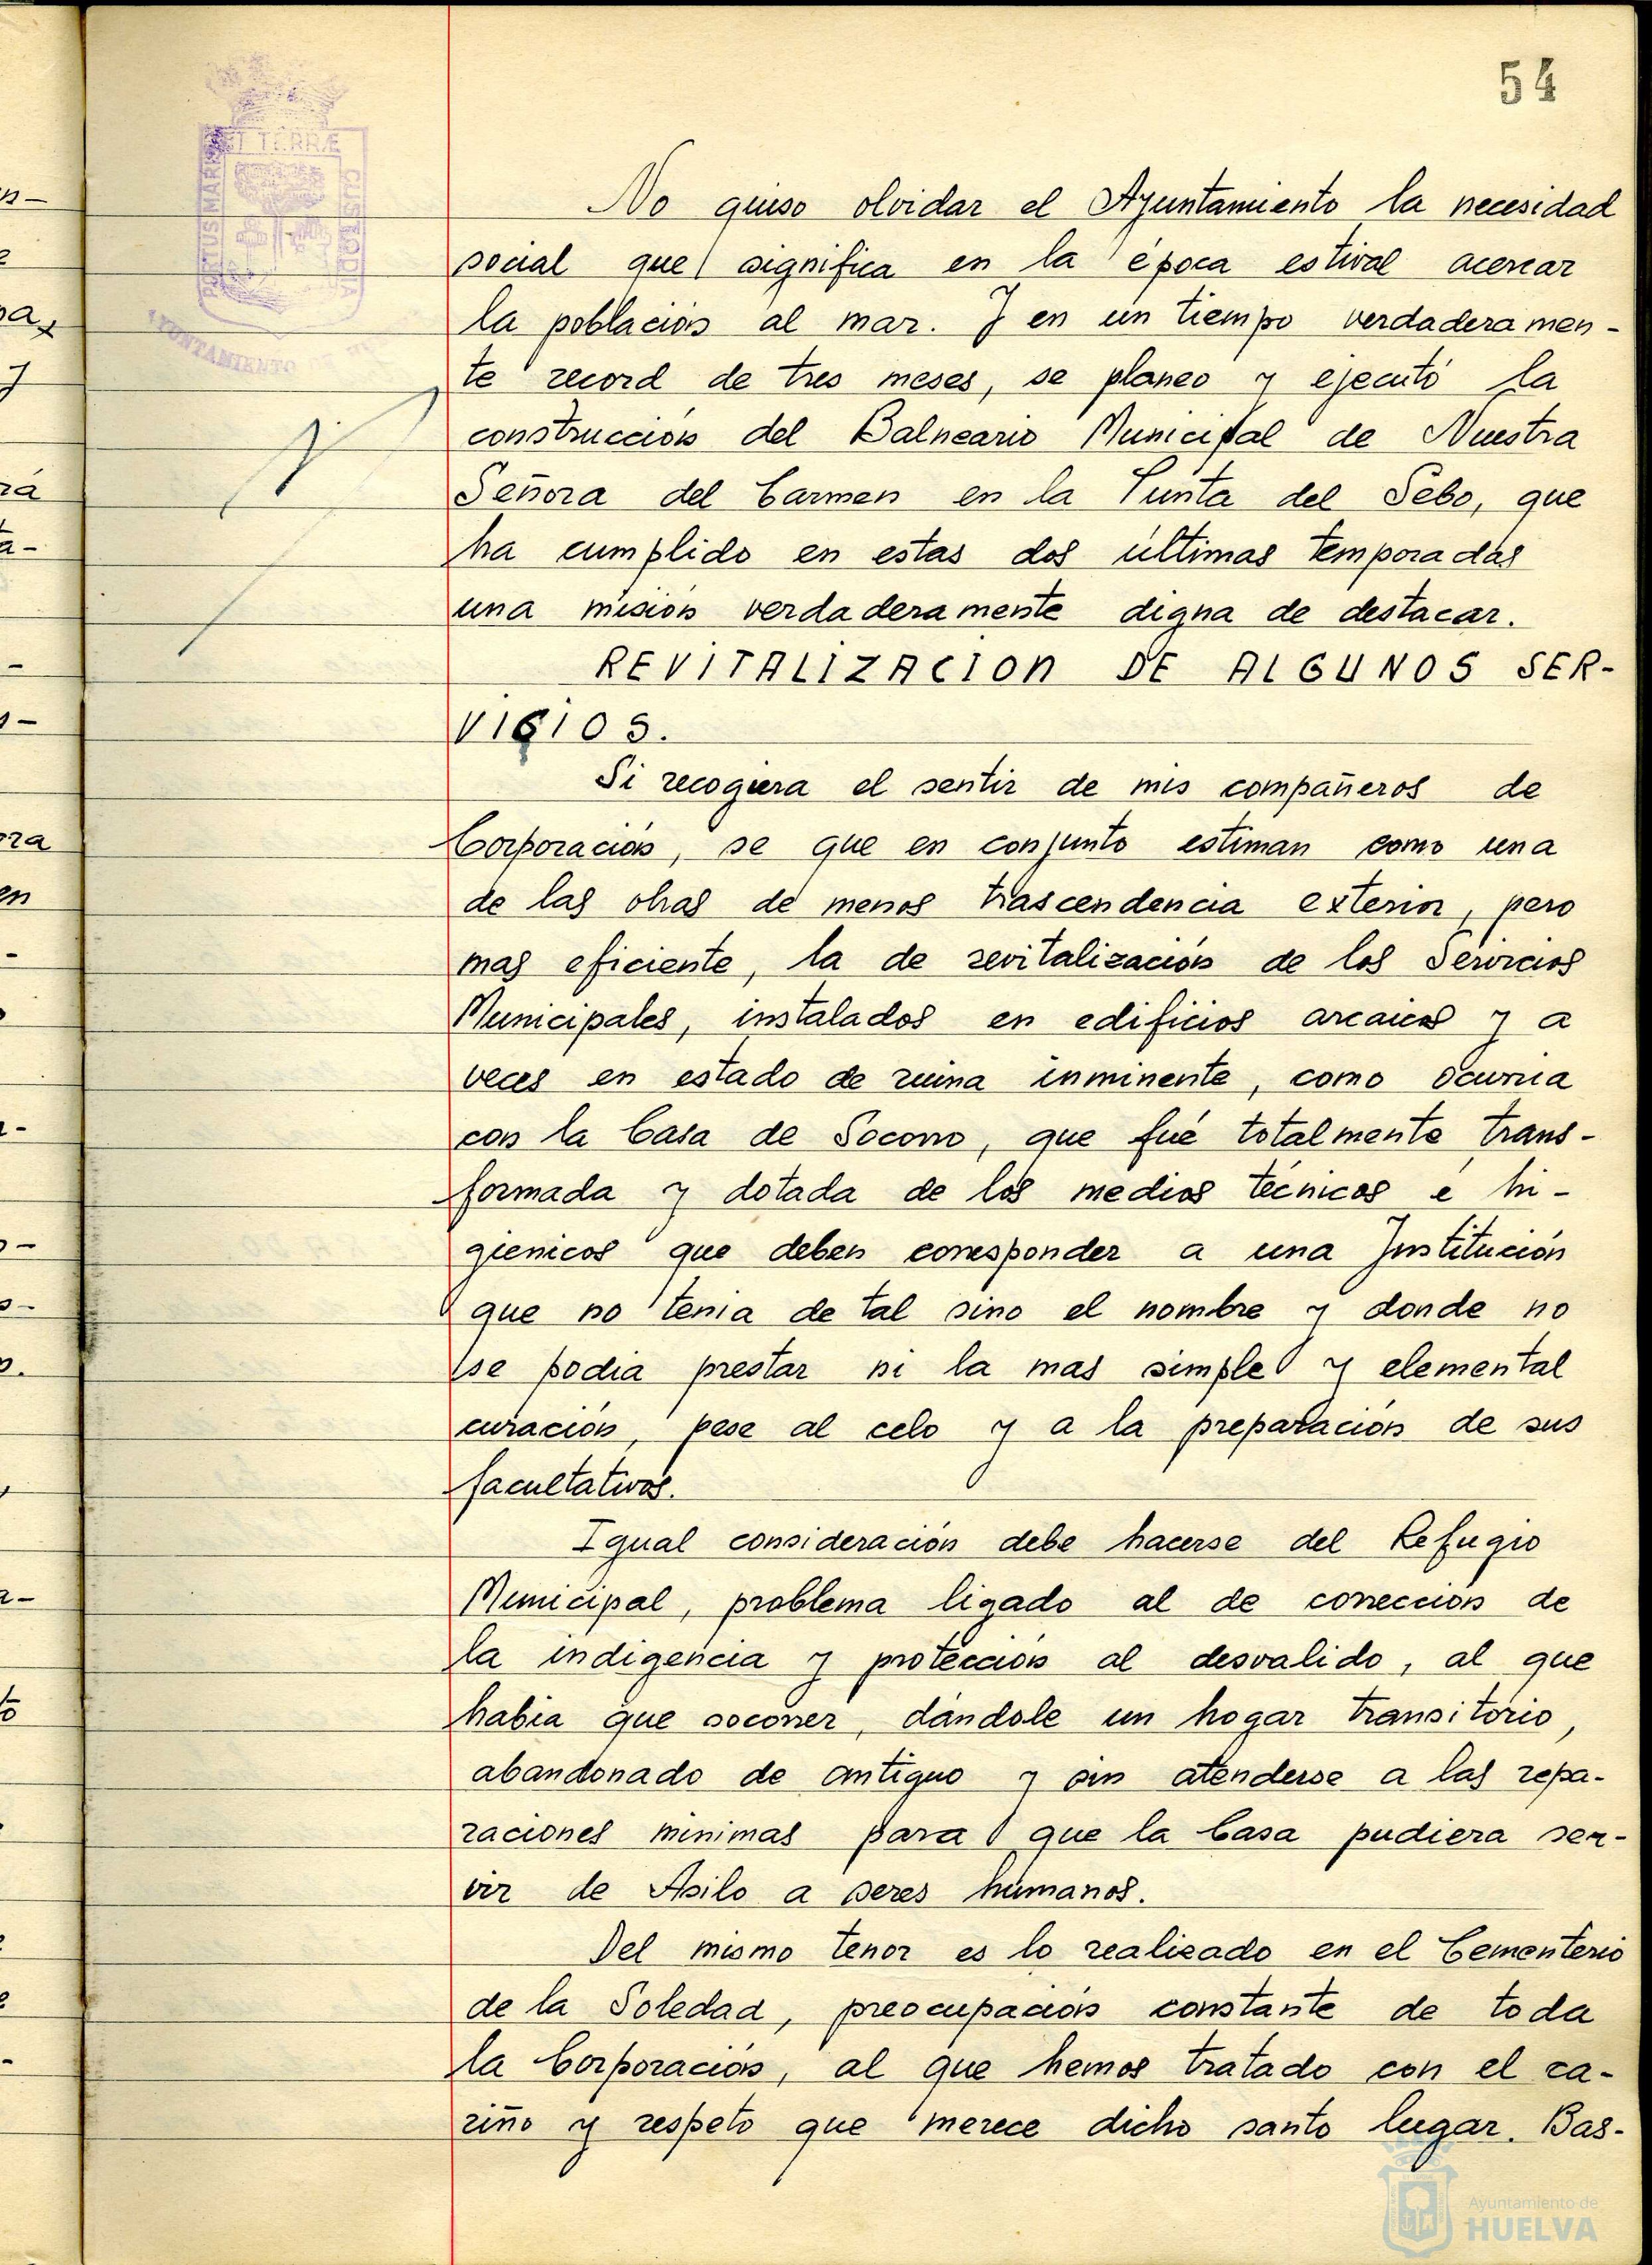 54
PORTUS MARIS ET TERRÆ CUSTODIA
AYUNTAMIENTO DE
No quiso olvidar el Ayuntamiento la necesidad
social que significa en la época estival acercar
la población al mar. Y en un tiempo verdaderamen-
te record de tres meses, se planeo y ejecutó la
construcción del Balneario Municipal de Nuestra
Señora del Carmen en la Punta del Sebo, que
ha cumplido en estas dos últimas temporadas
una misión verdaderamente digna de destacar.
REVITALIZACION DE ALGUNOS SER-
VICIOS.
Si recogiera el sentir de mis compañeros de
Corporación, se que en conjunto estiman como una
de las obras de menos trascendencia exterior, pero
mas eficiente, la de revitalización de los Servicios
Municipales, instalados en edificios arcaicos y a
veces en estado de ruina inminente, como ocurria
con la Casa de Socorro, que fué totalmente trans-
formada y dotada de los medios técnicos e hi-
gienicos que deben corresponder a una Institución
que no tenia de tal sino el nombre y donde no
se podia prestar ni la mas simple y elemental
curación, pese al celo y a la preparación de sus
facultativos.
Igual consideración debe hacerse del Refugio
Municipal, problema ligado al de corrección de
la indigencia y protección al desvalido, al que
habia que socorrer, dándole un hogar transitorio,
abandonado de antiguo y sin atenderse a las repa-
raciones minimas para que la Casa pudiera ser-
vir de Asilo a seres humanos.
Del mismo tenor es lo realizado en el Cementerio
de la Soledad, preocupación constante de toda
la Corporación, al que hemos tratado con el ca-
riño y respeto que merece dicho santo lugar. Bas-
Ayuntamiento de
HUELVA